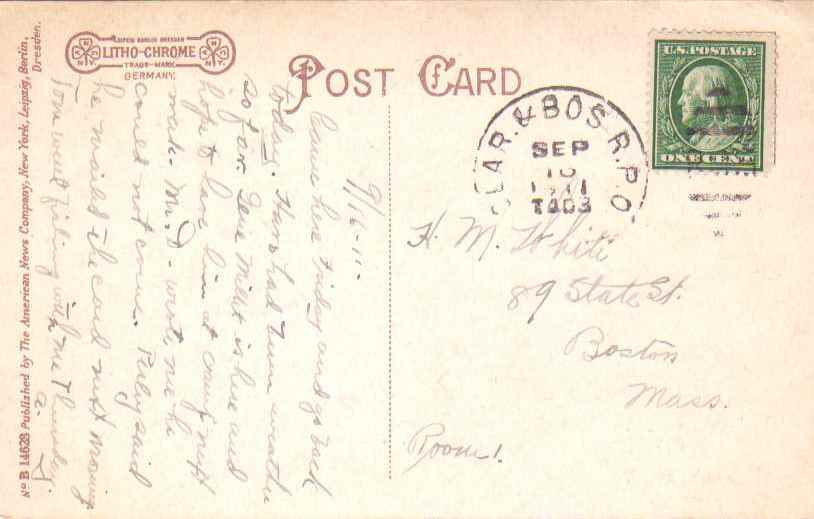 LEIPZIG BERLIN DRESDEN
LITHO-CHROME
TRADE-MARK
GERMANY.
POST CARD
U.S. POSTAGE
ONE CENT
CAR. & BOS. R.P.O.
SEP
16
1911
TR
H. M. White
89 State St.
Boston
Mass.
Room 1.
9/16-11-
Came here Friday and go back
today. Have had fine weather
so far. Gene Millet is here and
hope to have him at camp next
week. Mr. D- wrote me he
could not come. Perley said
he mailed the card next morning
Tom went fishing with me Thursday
No B 14628 Published by The American News Company, New York, Leipzig, Berlin,
Dresden.